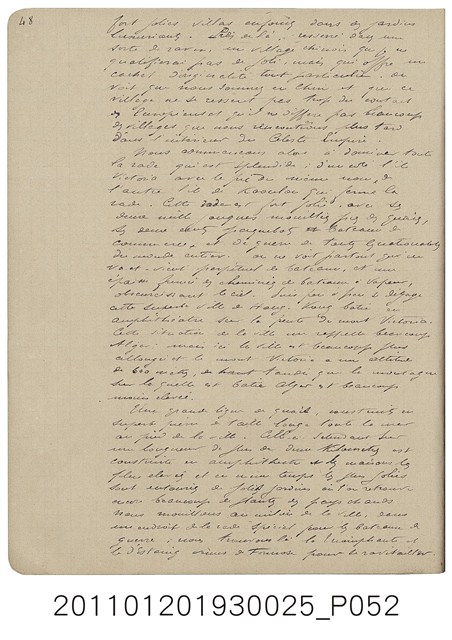 48
fort jolies villas enfouies dans des jardins
luxuriants. Près de là, resserré dans une
sorte de ravin, un village chinois que je ne
qualifierai pas de joli, mais qui offre un
cachet d'originalité tout particulier. on
voit que nous sommes en Chine et que ce
village ne se ressent pas trop du contact
des Européens et qu'il ne diffère pas beaucoup
des villages que nous rencontrerons plus tard
dans l'intérieur du Céleste Empire.
Nous commençons alors à dominer toute
la rade qui est splendide; d'un côté l'île
Victoria avec le pic du même nom, de
l'autre l'île de Kaoulan qui ferme la
rade. Cette rade est fort jolie avec ses
deux mille jonques mouillées près des quais,
ses deux cents paquebots bateaux de
commerce, et de guerre de toutes les nationalités
du monde entier. on ne voit partout que un
va et vient perpétuel de bateaux, et une
épaisse fumée des cheminées de bateaux à vapeur,
obscurcissant le ciel. Puis peu à peu se dégage
cette superbe ville de Hong-Kong bâtie en
amphithéâtre sur la pente du mont Victoria.
Cette situation de la ville me rappelle beaucoup
Alger: mais ici la ville est beaucoup plus
allongée et le mont Victoria a une altitude
de 600 mètres de haut tandis que la montagne
sur laquelle est bâtie Alger est beaucoup
moins élevée.
Une grande ligne de quais, construits en
superbe pierre de taille longe toute la mer
au pied de la ville. Celle-ci s'étendant sur
une longueur de plus de deux kilomètres est
construite en amphithéâtre et les maisons les
plus élevées et en même temps les plus jolies
sont entourées de jolis jardins où l'on retrouve
encore beaucoup de plantes des pays chauds
Nous mouillons au milieu de la ville, dans
un endroit de la rade spécial pour les bateaux de
guerre; nous trouvons là la Triomphante et
le d'Estaing venus de Formose pour se ravitailler.
201101201930025_P052